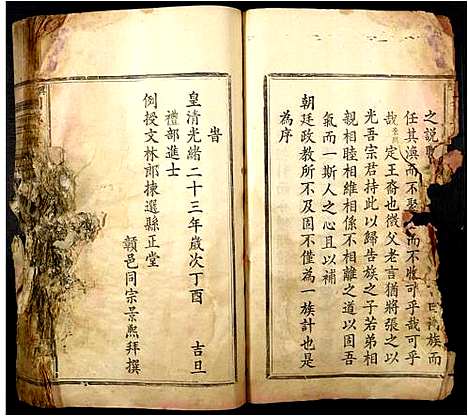 之說
任其渙而不聚而不收可乎哉可乎
哉定王畚也微父老言猶將張之以
光吾宗君持此以歸告族之子若弟相
親相睦相維相係不相離之道以固吾
氣而一斯人之心且以補
朝廷政教所不及固不僅為一族計也是
為序
旹
皇清光緒二十三年歲次丁酉 吉旦
禮部進士
例授文林郎揀選縣正堂
贛邑同宗景熙拜撰